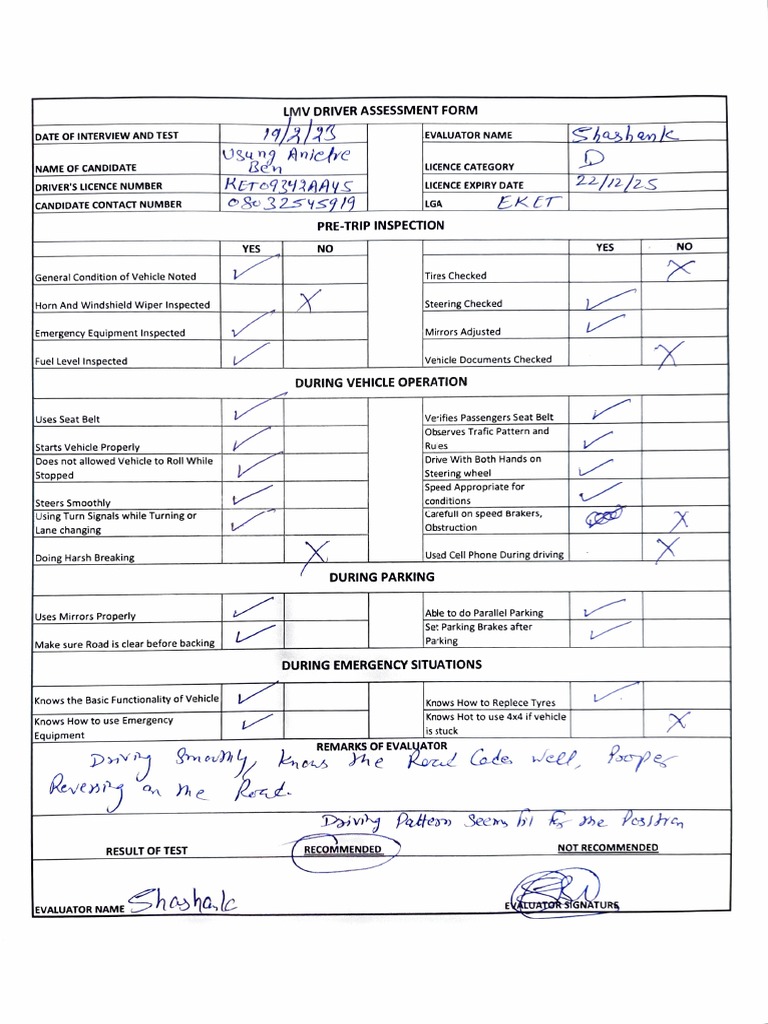 LMV DRIVER ASSESSMENT FORM
DATE OF INTERVIEW AND TEST 19/2/23 EVALUATOR NAME Shashank
NAME OF CANDIDATE Usung Anietre Ben LICENCE CATEGORY D
DRIVER'S LICENCE NUMBER KET09342AA45 LICENCE EXPIRY DATE 22/12/25
CANDIDATE CONTACT NUMBER 08032545919 LGA EKET
PRE-TRIP INSPECTION
YES NO YES NO
General Condition of Vehicle Noted ✓ Tires Checked X
Horn And Windshield Wiper Inspected X Steering Checked ✓
Emergency Equipment Inspected ✓ Mirrors Adjusted ✓
Fuel Level Inspected ✓ Vehicle Documents Checked X
DURING VEHICLE OPERATION
Uses Seat Belt ✓ Verifies Passengers Seat Belt ✓
Starts Vehicle Properly ✓ Observes Trafic Pattern and Rules ✓
Does not allowed Vehicle to Roll While Stopped ✓ Drive With Both Hands on Steering wheel ✓
Steers Smoothly ✓ Speed Appropriate for conditions ✓
Using Turn Signals while Turning or Lane changing ✓ Carefull on speed Brakers, Obstruction X
Doing Harsh Breaking X Used Cell Phone During driving X
DURING PARKING
Uses Mirrors Properly ✓ Able to do Parallel Parking ✓
Make sure Road is clear before backing ✓ Set Parking Brakes after Parking ✓
DURING EMERGENCY SITUATIONS
Knows the Basic Functionality of Vehicle ✓ Knows How to Replece Tyres ✓
Knows How to use Emergency Equipment ✓ Knows Hot to use 4x4 if vehicle is stuck X
REMARKS OF EVALUATOR
Driving Smoothly, knows the Road Codes well, Prooper
Reversing on the Road.
Driving Pattern Seems fit for the Position
RESULT OF TEST RECOMMENDED NOT RECOMMENDED
EVALUATOR NAME Shashank EVALUATOR SIGNATURE